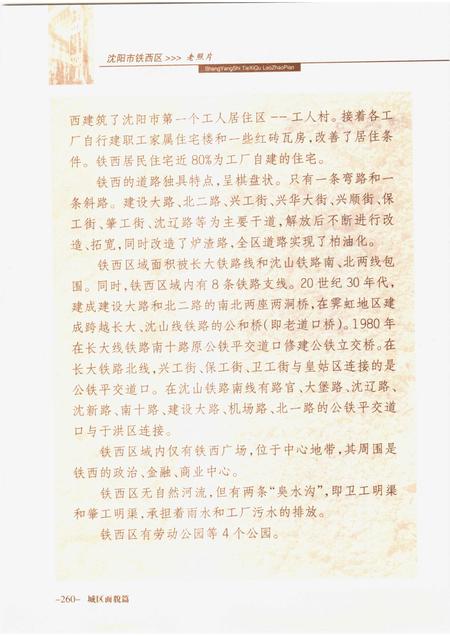 沈阳市铁西区>>> 老照片
ShengYangShi TieXiQu LaoZhaoPian
西建筑了沈阳市第一个工人居住区--工人村。接着各工
厂自行建职工家属住宅楼和一些红砖瓦房,改善了居住条
件。铁西居民住宅近80%为工厂自建的住宅。
铁西的道路独具特点,呈棋盘状。只有一条弯路和一
条斜路。建设大路、北二路、兴工街、兴华大街、兴顺街、保
工街、肇工街、沈辽路等为主要干道,解放后不断进行改
造、拓宽,同时改造了炉渣路,全区道路实现了柏油化。
铁西区域面积被长大铁路线和沈山铁路南、北两线包
围。同时,铁西区域内有8条铁路支线。20世纪30年代,
建成建设大路和北二路的南北两座两洞桥,在霁虹地区建
成跨越长大、沈山线铁路的公和桥(即老道口桥)。1980年
在长大线铁路南十路原公铁平交道口修建公铁立交桥。在
长大铁路北线,兴工街、保工街、卫工街与皇姑区连接的是
公铁平交道口。在沈山铁路南线有路官、大堡路、沈辽路、
沈新路、南十路、建设大路、机场路、北一路的公铁平交道
口与于洪区连接。
铁西区域内仅有铁西广场,位于中心地带,其周围是
铁西的政治、金融、商业中心。
铁西区无自然河流,但有两条“臭水沟”,即卫工明渠
和肇工明渠,承担着雨水和工厂污水的排放。
铁西区有劳动公园等4个公园。
-260- 城区面貌篇